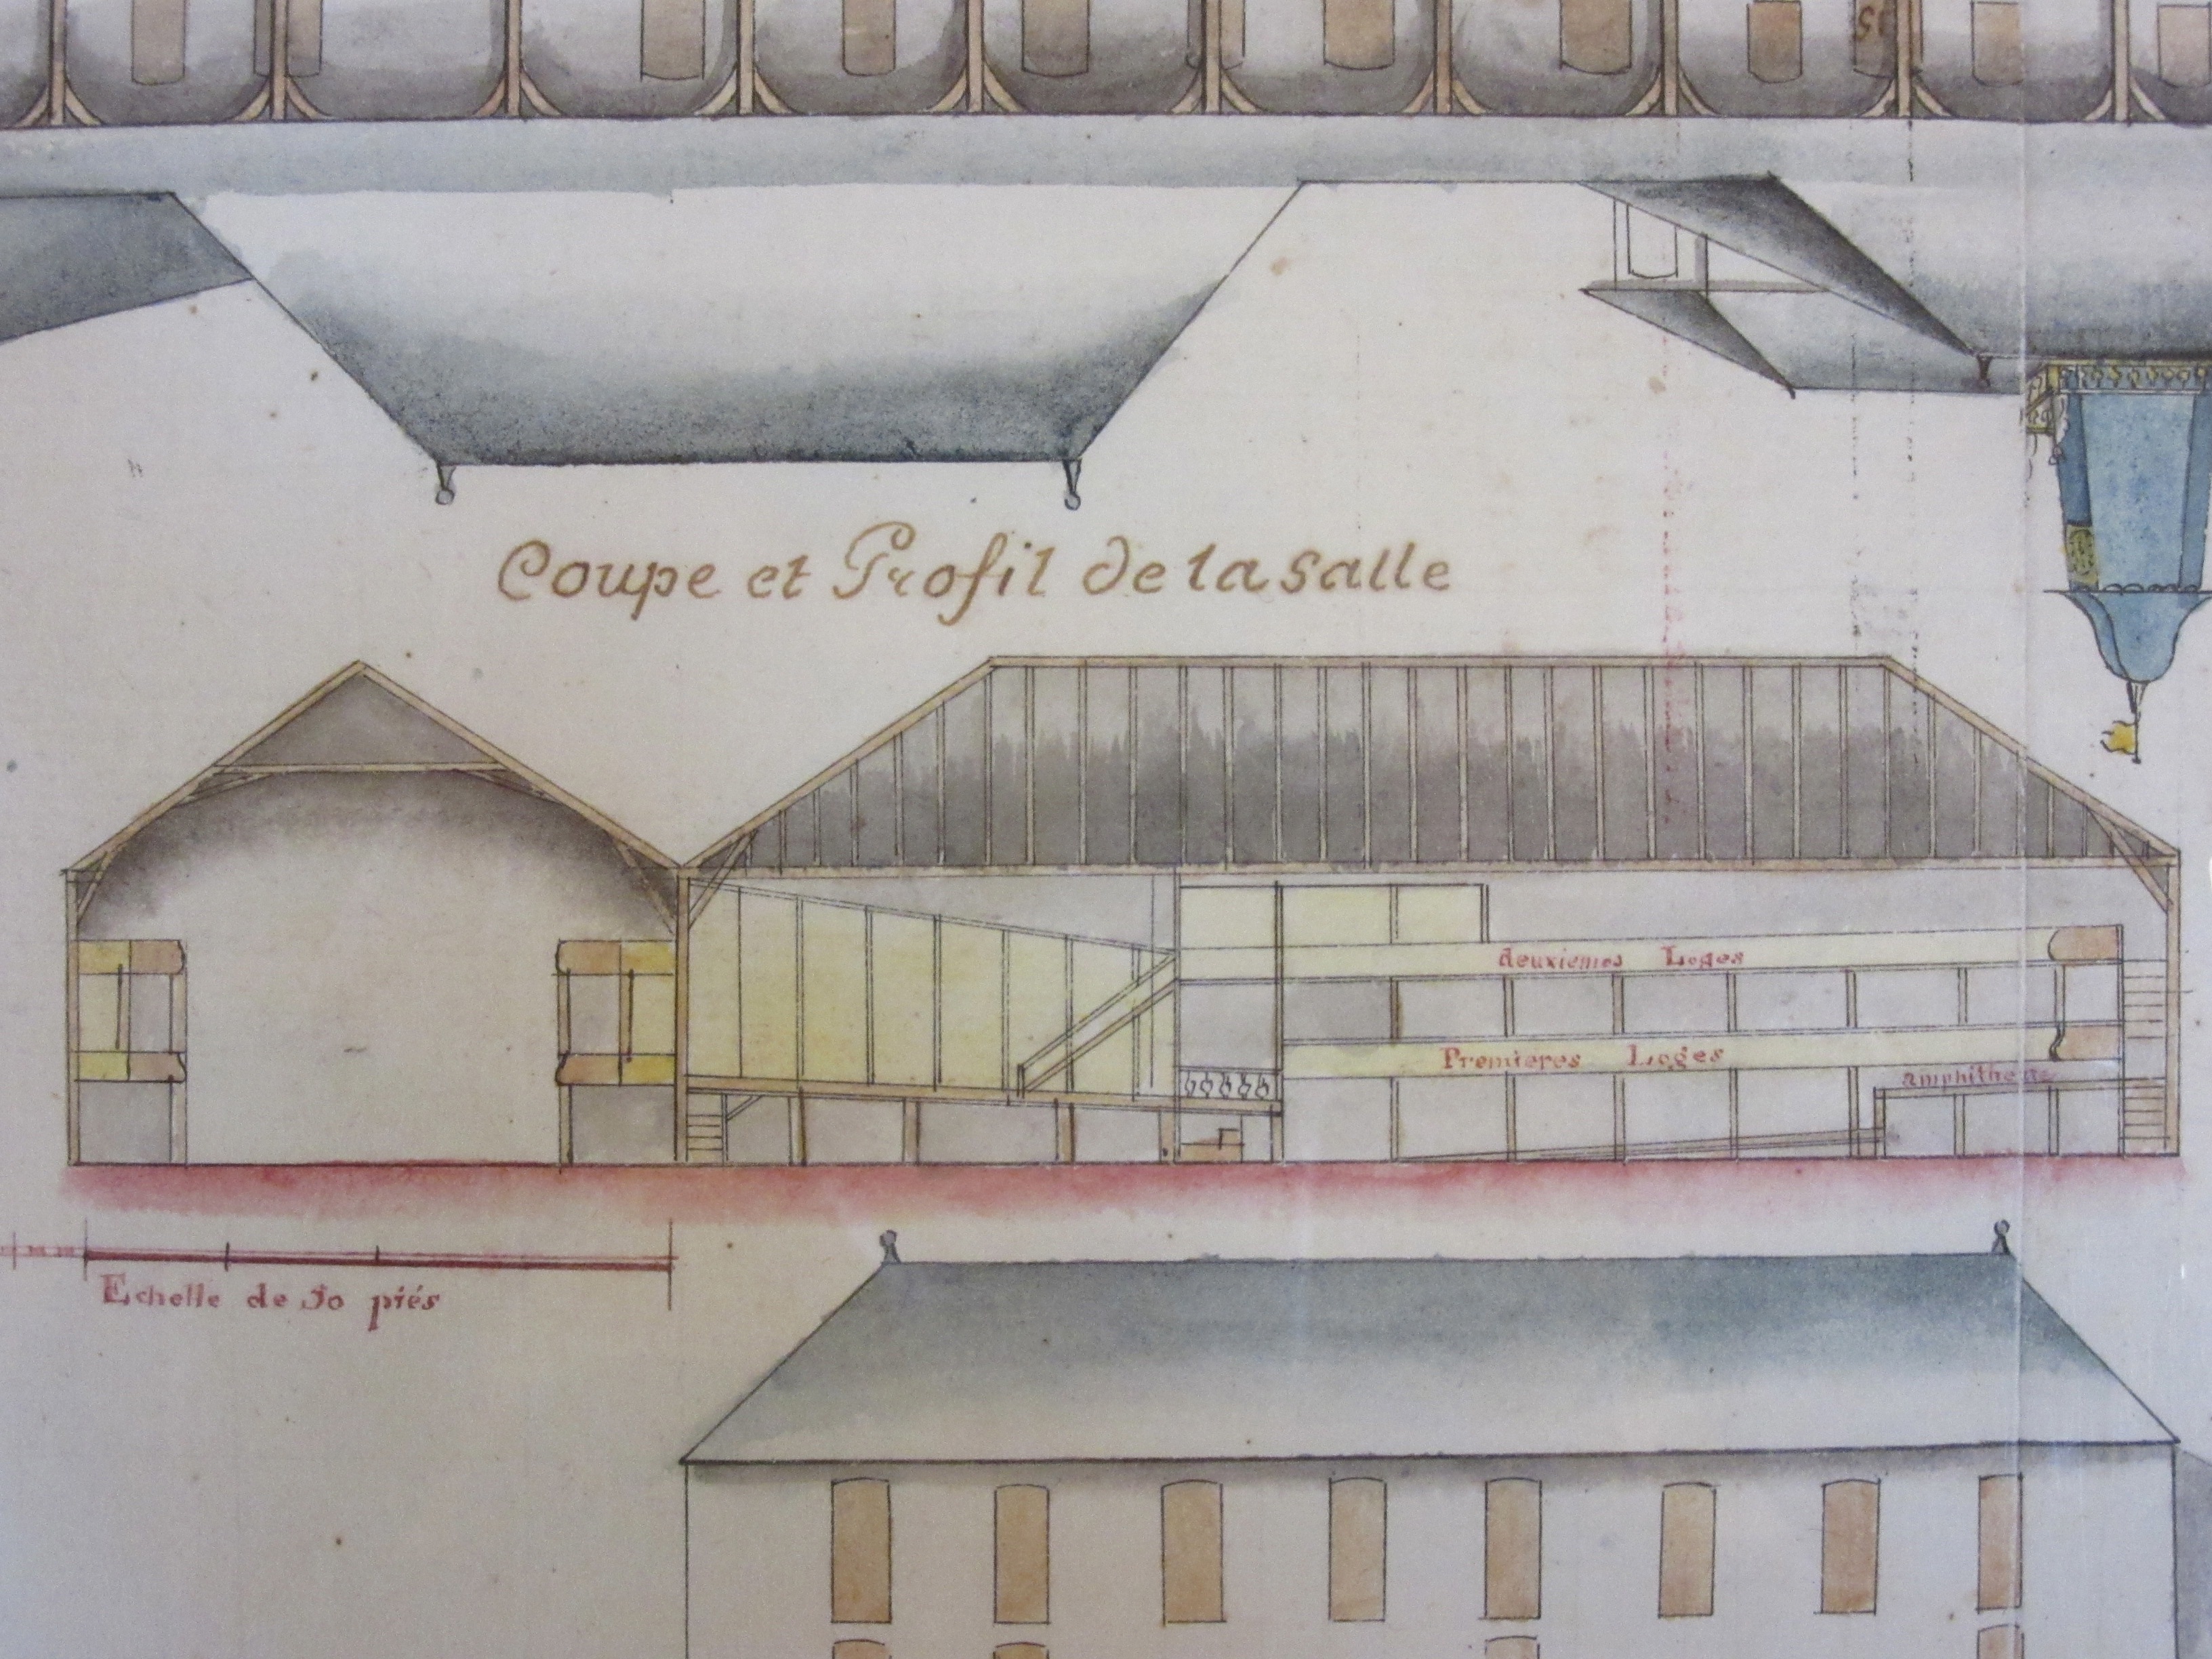 Coupe et Profil de la salle
deuxiemes Loges
Premieres Loges
amphitheatre
Echelle de 50 piés